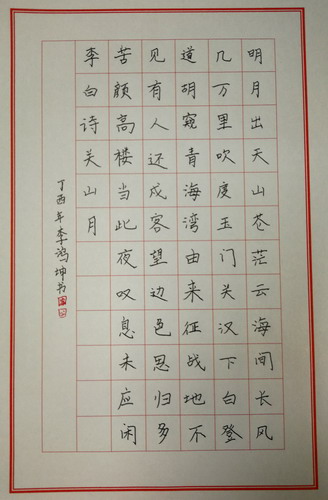 明月出天山苍茫云海间长风
几万里吹度玉门关汉下白登
道胡窥青海湾由来征战地不
见有人还戍客望边色思归多
苦颜高楼当此夜叹息未应闲
李白诗关山月
丁酉年李鸿坤书